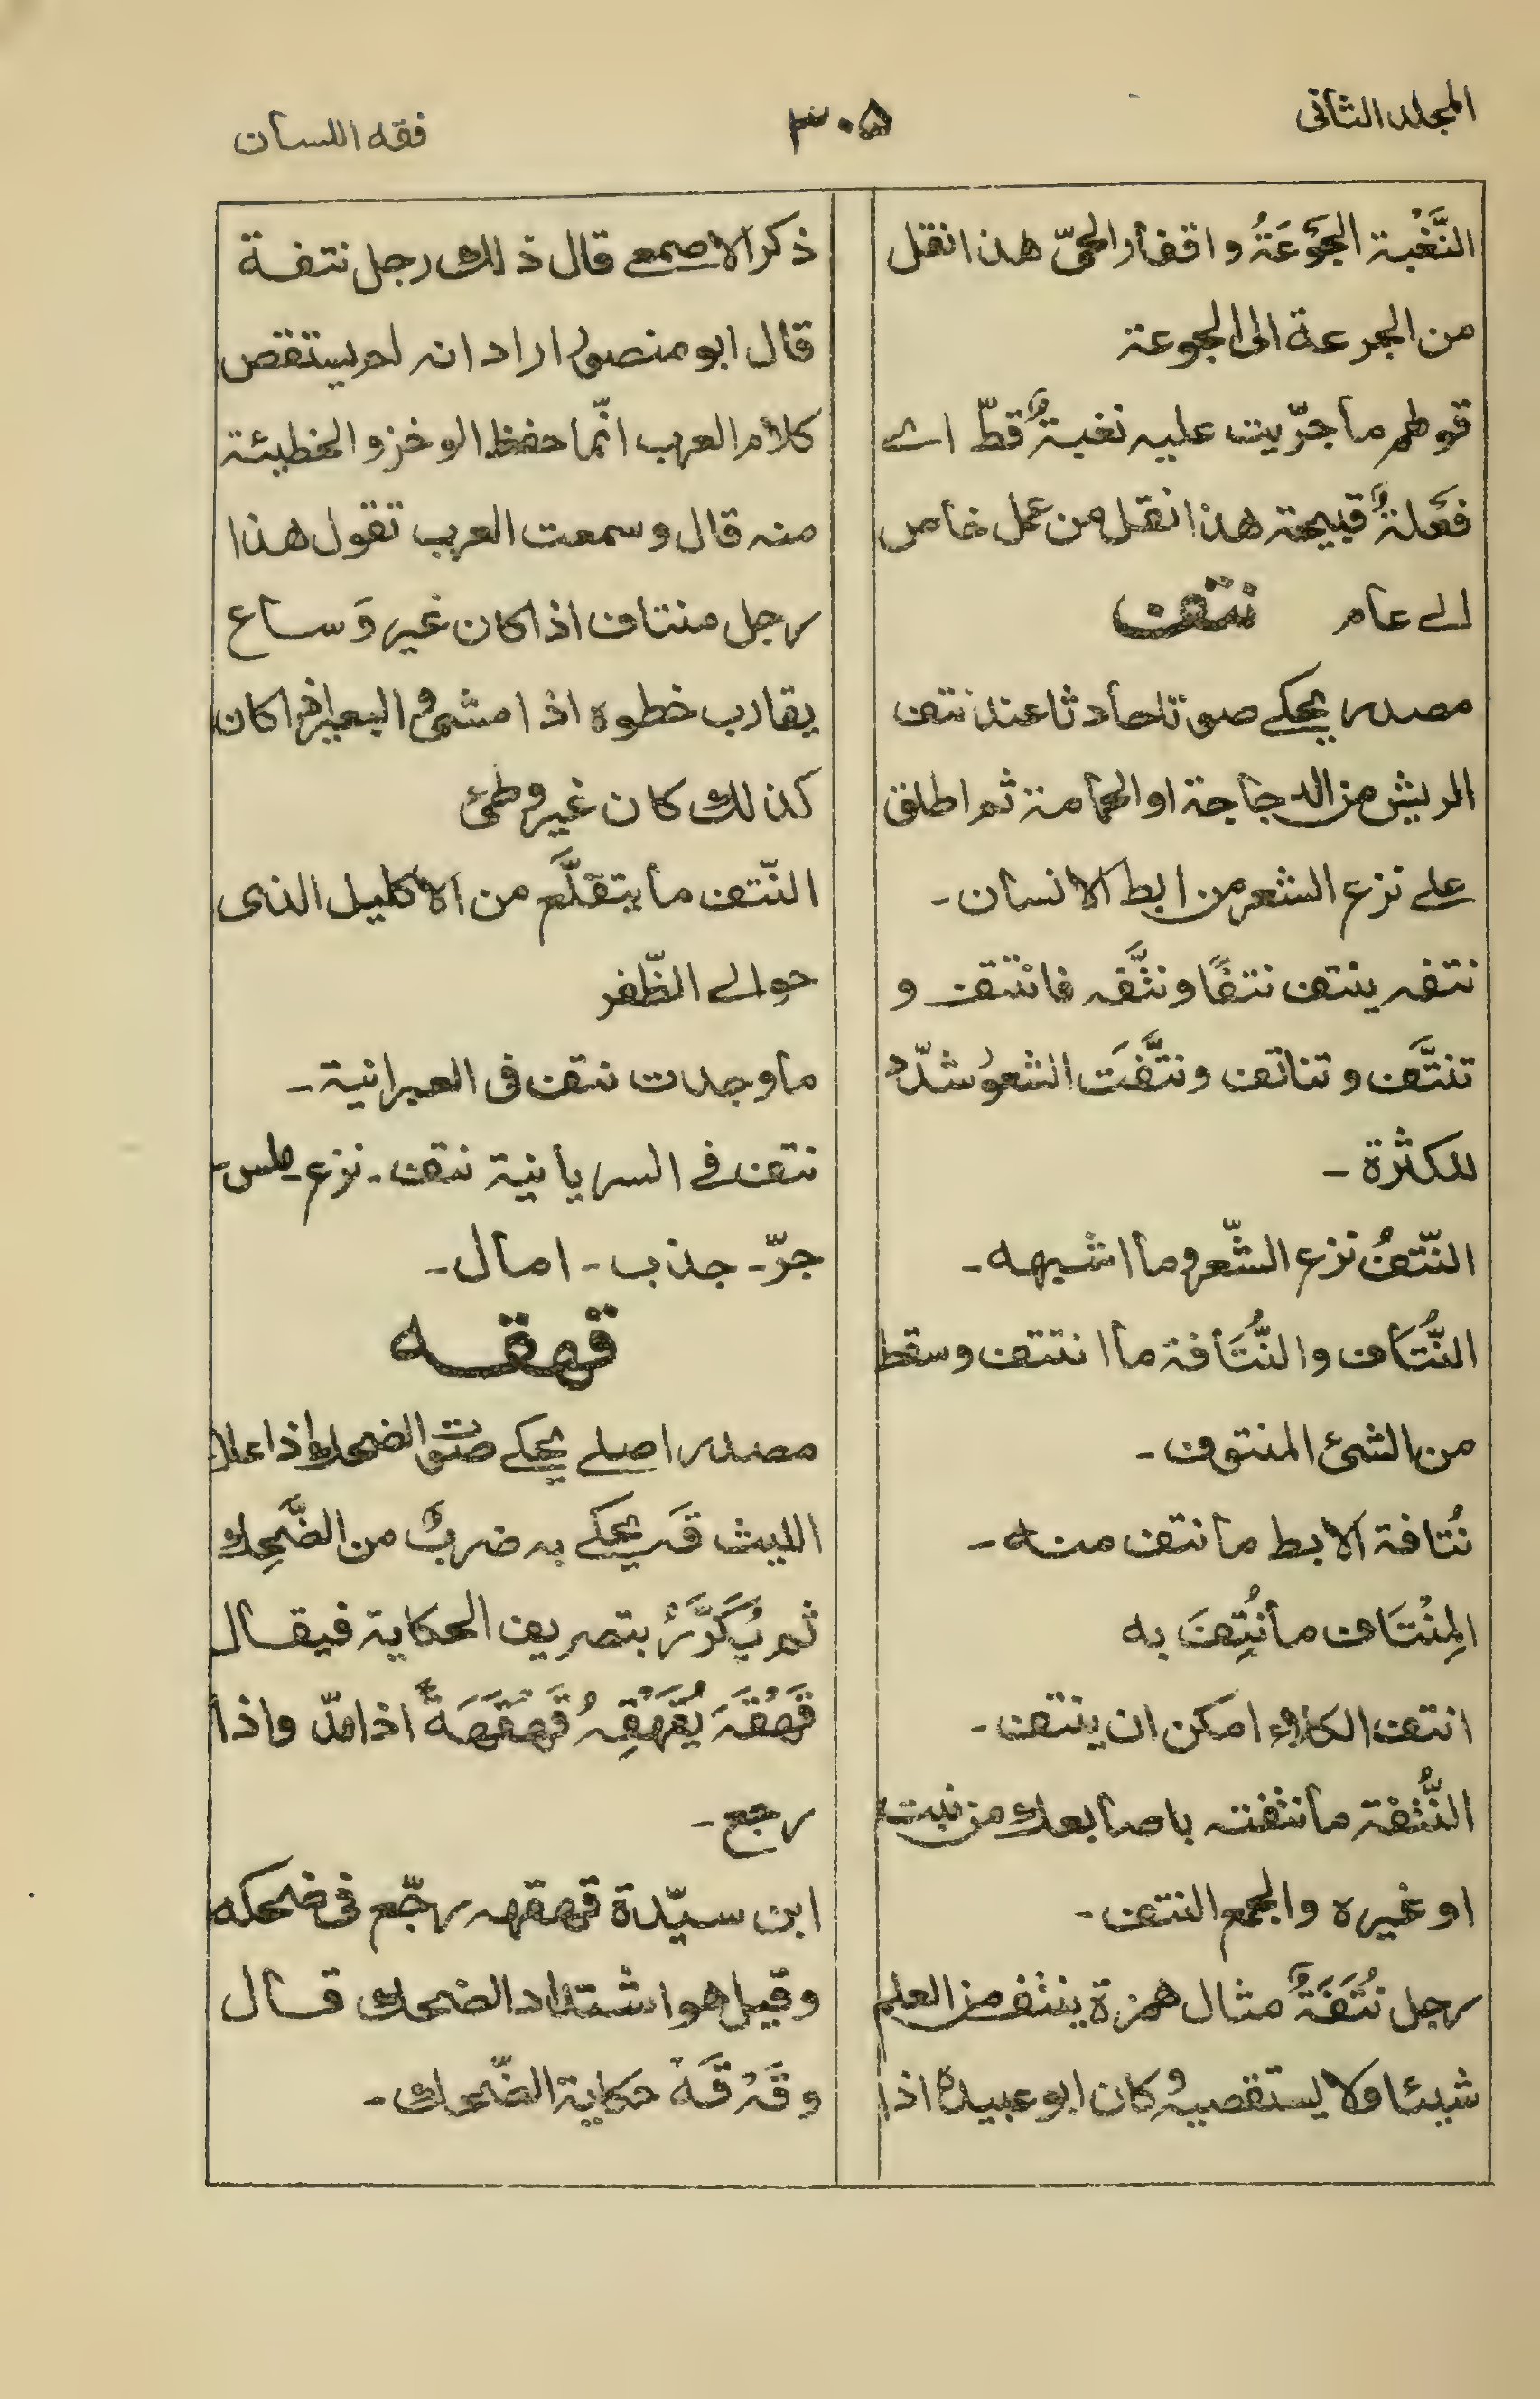 المجلد الثانی
۳۰۵
فقه اللسان
النَّغْبة الجَوْعَةُ واقفار الحیّ هذا نقل
من الجرعة الی الجوعة
قولهم ما جرّبت علیه نغبةٌ قطّ اے
فَعْلةٌ قبیحة هذا نقل من عمل خاص
الے عام
نتف
مصدر یحکے صوتا حادثا عند نتف
الریش من الدجاجة او الحمامة ثم اطلق
علے نزع الشعر من ابط الانسان۔
نتفه ینتف نتفًا ونتَّفه فانتتف و
تنتَّف وتناتف ونتَّفَت الشعورُ شدّد
للکثرة۔
النّتفُ نزع الشّعر وما اشبهه۔
النُّتَاف والنُّتَافة ما انتتف وسقط
من الشئ المنتوف۔
نُتافة الابط ما نتف منه۔
المِنْتَاف ما نُتِفَ به
انتف الکلاء امکن ان ینتف۔
النُّتفة ما نتفته باصابعك من نبت
او غیره والجمع النتف۔
رجل نُتَفَةٌ مثال همزة ینتف من العلم
شیئا ولا یستقصیه وکان ابو عبیدة اذا
ذکر الاصمعے قال ذلك رجل نتفة
قال ابو منصور اراد انه لم یستقص
کلام العرب انّما حفظ الوخز والخطیئة
منه قال وسمعت العرب تقول هذا
رجل منتاف اذا کان غیر وَساع
یقارب خطوه اذا مشی والبعیر اذا کان
کذلك کان غیر وطئ
النّتف ما یتقلَّع من الاکلیل الذی
حوالے الظّفر
ما وجدت نتف فی العبرانیة۔
نتف فے السریانیة نتف۔ نزع۔ ملس۔
جرّ۔ جذب۔ امال۔
قهقه
مصدر اصلے یحکے صوت الضحك اذا علا
اللیث قَه یحکے به ضربٌ من الضَّحِك
ثم یُکَرَّرُ بتصریف الحکایة فیقال
قَهْقَهَ یُقَهْقِهُ قَهْقَهَةً اذا مدّ واذا
رجع۔
ابن سیّدة قهقهه رجّع فی ضحکه
وقیل هو اشتداد الضحك قال
وقَهْ قَهْ حکایة الضّحك۔